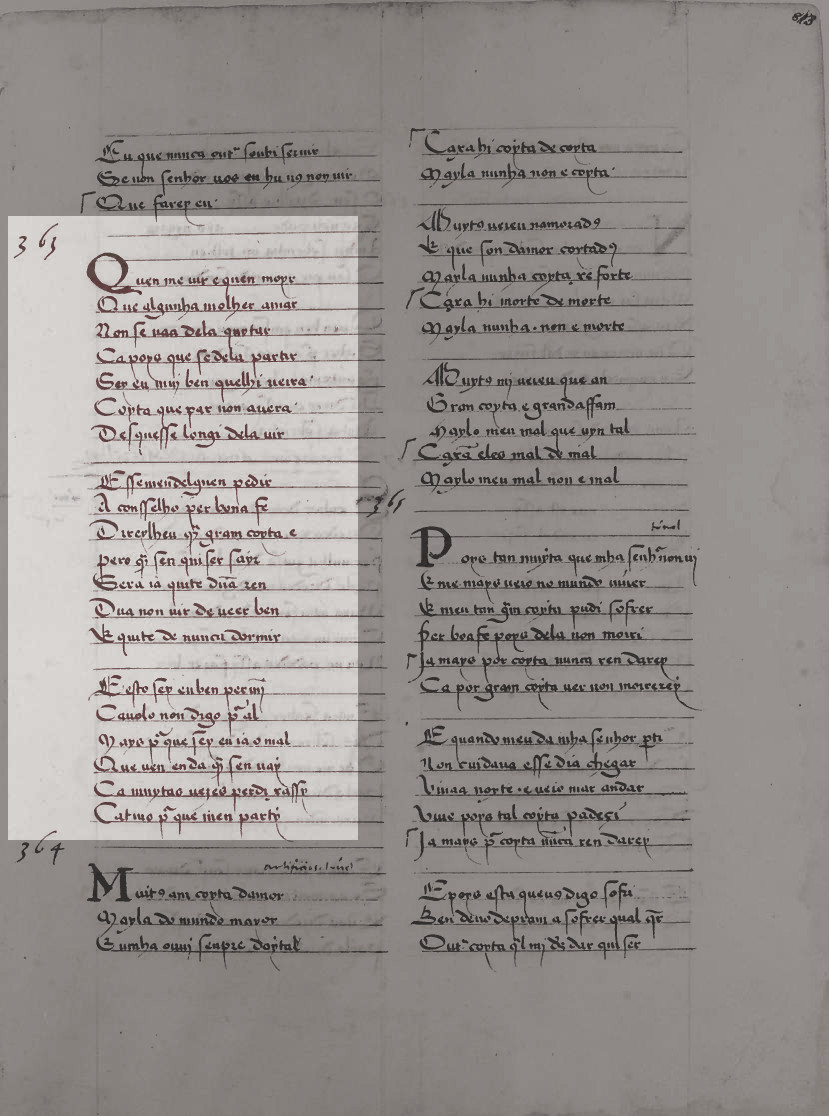 Eu que nunca out^a soubi seruir
Se non senhor uos en hu u9 non uir
Que farey eu
363
Quen me uir e quen moyr
Que algunha molher amar
Non se uaa dela quytar
Ca poys que se dela partir
Sey eu muj ben quelhi ueira
Coyta que par non auera
Desquesse longi dela uir
Essemendelguen pedir
A consselho per bona fe
Direylheu q̄ gram coyta e
pero q̄ sen qui ser sayr
Sera ia quite dūa ren
Dua non uir de ueer ben
E quite de nunca dormir
E esto sey eu ben per mj̄
Ca uolo non digo p^r al
Mays p^r que sēy eu ia o mal
Que uen enda q̄ sen uay
Ca muytas uezes perdi rassy
Catiuo p^r que men party
364
Muit9 am coyta damor
Mayla do mundo mayor
E unha ouuj senpre doytal
813
Cara hi coyta de coyta
Mayla minha non e coyta
Muyt9 ueieu namorad9
E que son damor coytad9
Mayla minha coyta xe forte
Cara hi morte de morte
Mayla minha non e morte
Muyt9 mj ueieu que an
Gran coyta e grandaffam
Maylo meu mal que uyn tal
Cara eles mal de mal
Maylo meu mal non e mal
365
tornel
Poys tan muyta que mha senh^r non uj
E me mays ueio no mundo uiuer
E meu tan grm coyta pudi sofrer
Per boa fe poys dela non moiri
Ja mays por coyta nunca ren darey
Ca por gram coyta uer non moirerey
E quando meu da mha senhor p̱ti
Non cuidaua esse dia chegar
Viuaa norte e ueio mar andar
Viue poys tal coyta padeçi
Ja mays p^r coyta nūca ren darey
E poys esta que u9 digo sofri
Ben deuo de pram a sofrer qual q̄r
Out^a coyta q̄l mj d̄s dar qui ser